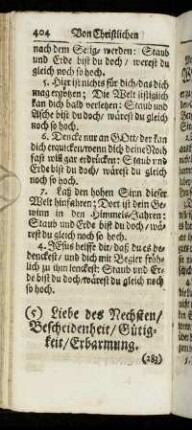 404 Von Christlichen
nach dem Selig, werden: Staub
und Erde bist du doch / werest du
gleich noch so hoch.
5. Hier ist nichts für dich / das dich
mag ergötzen; Die Welt
kan dich bald verletzen: Staub und
Asche bist du doch / wärest du gleich
noch so hoch.
6. Dencke nur an GOtt / der kan
dich erquicken / wenn dich deine Noth
fast will gar erdrücken: Staub und
Erde bist du doch / wärest du gleich
noch so hoch.
7. Laß den hohen Sinn dieser
Welt hinfahren; Dort ist dein Ge-
winn in den Himmels-Jahren:
Staub und Erde bist du doch / wä-
rest du gleich noch so hoch.
JEsus helffe dir / daß du es be-
denckest / und dich mit Begier fröh-
lich zu ihm lenckest: Staub und Er-
de bist du doch / wärest du gleich noch
so hoch.
(5) Liebe des Nechsten /
Bescheidenheit / Gütig-
keit / Erbarmung.